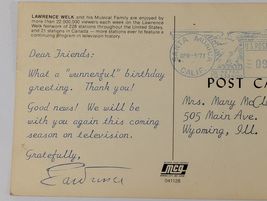 LAWRENCE WELK and his Musical Family are enjoyed by
more than 22,000,000 viewers each week on the Lawrence
Welk Network of 228 stations throughout the United States,
and 21 stations in Canada — more stations than ever to feature a
continuing program in television history.
Dear Friends:
What a "wunnerful" birthday
greeting. Thank you!
Good news! We will be
with you again this coming
season on television.
Gratefully,
SANTA MONICA
CALIF.
U.S. POST
POST CA
Mrs. Mary McCl
505 Main Ave.
Wyoming, Ill.
mcg
041128